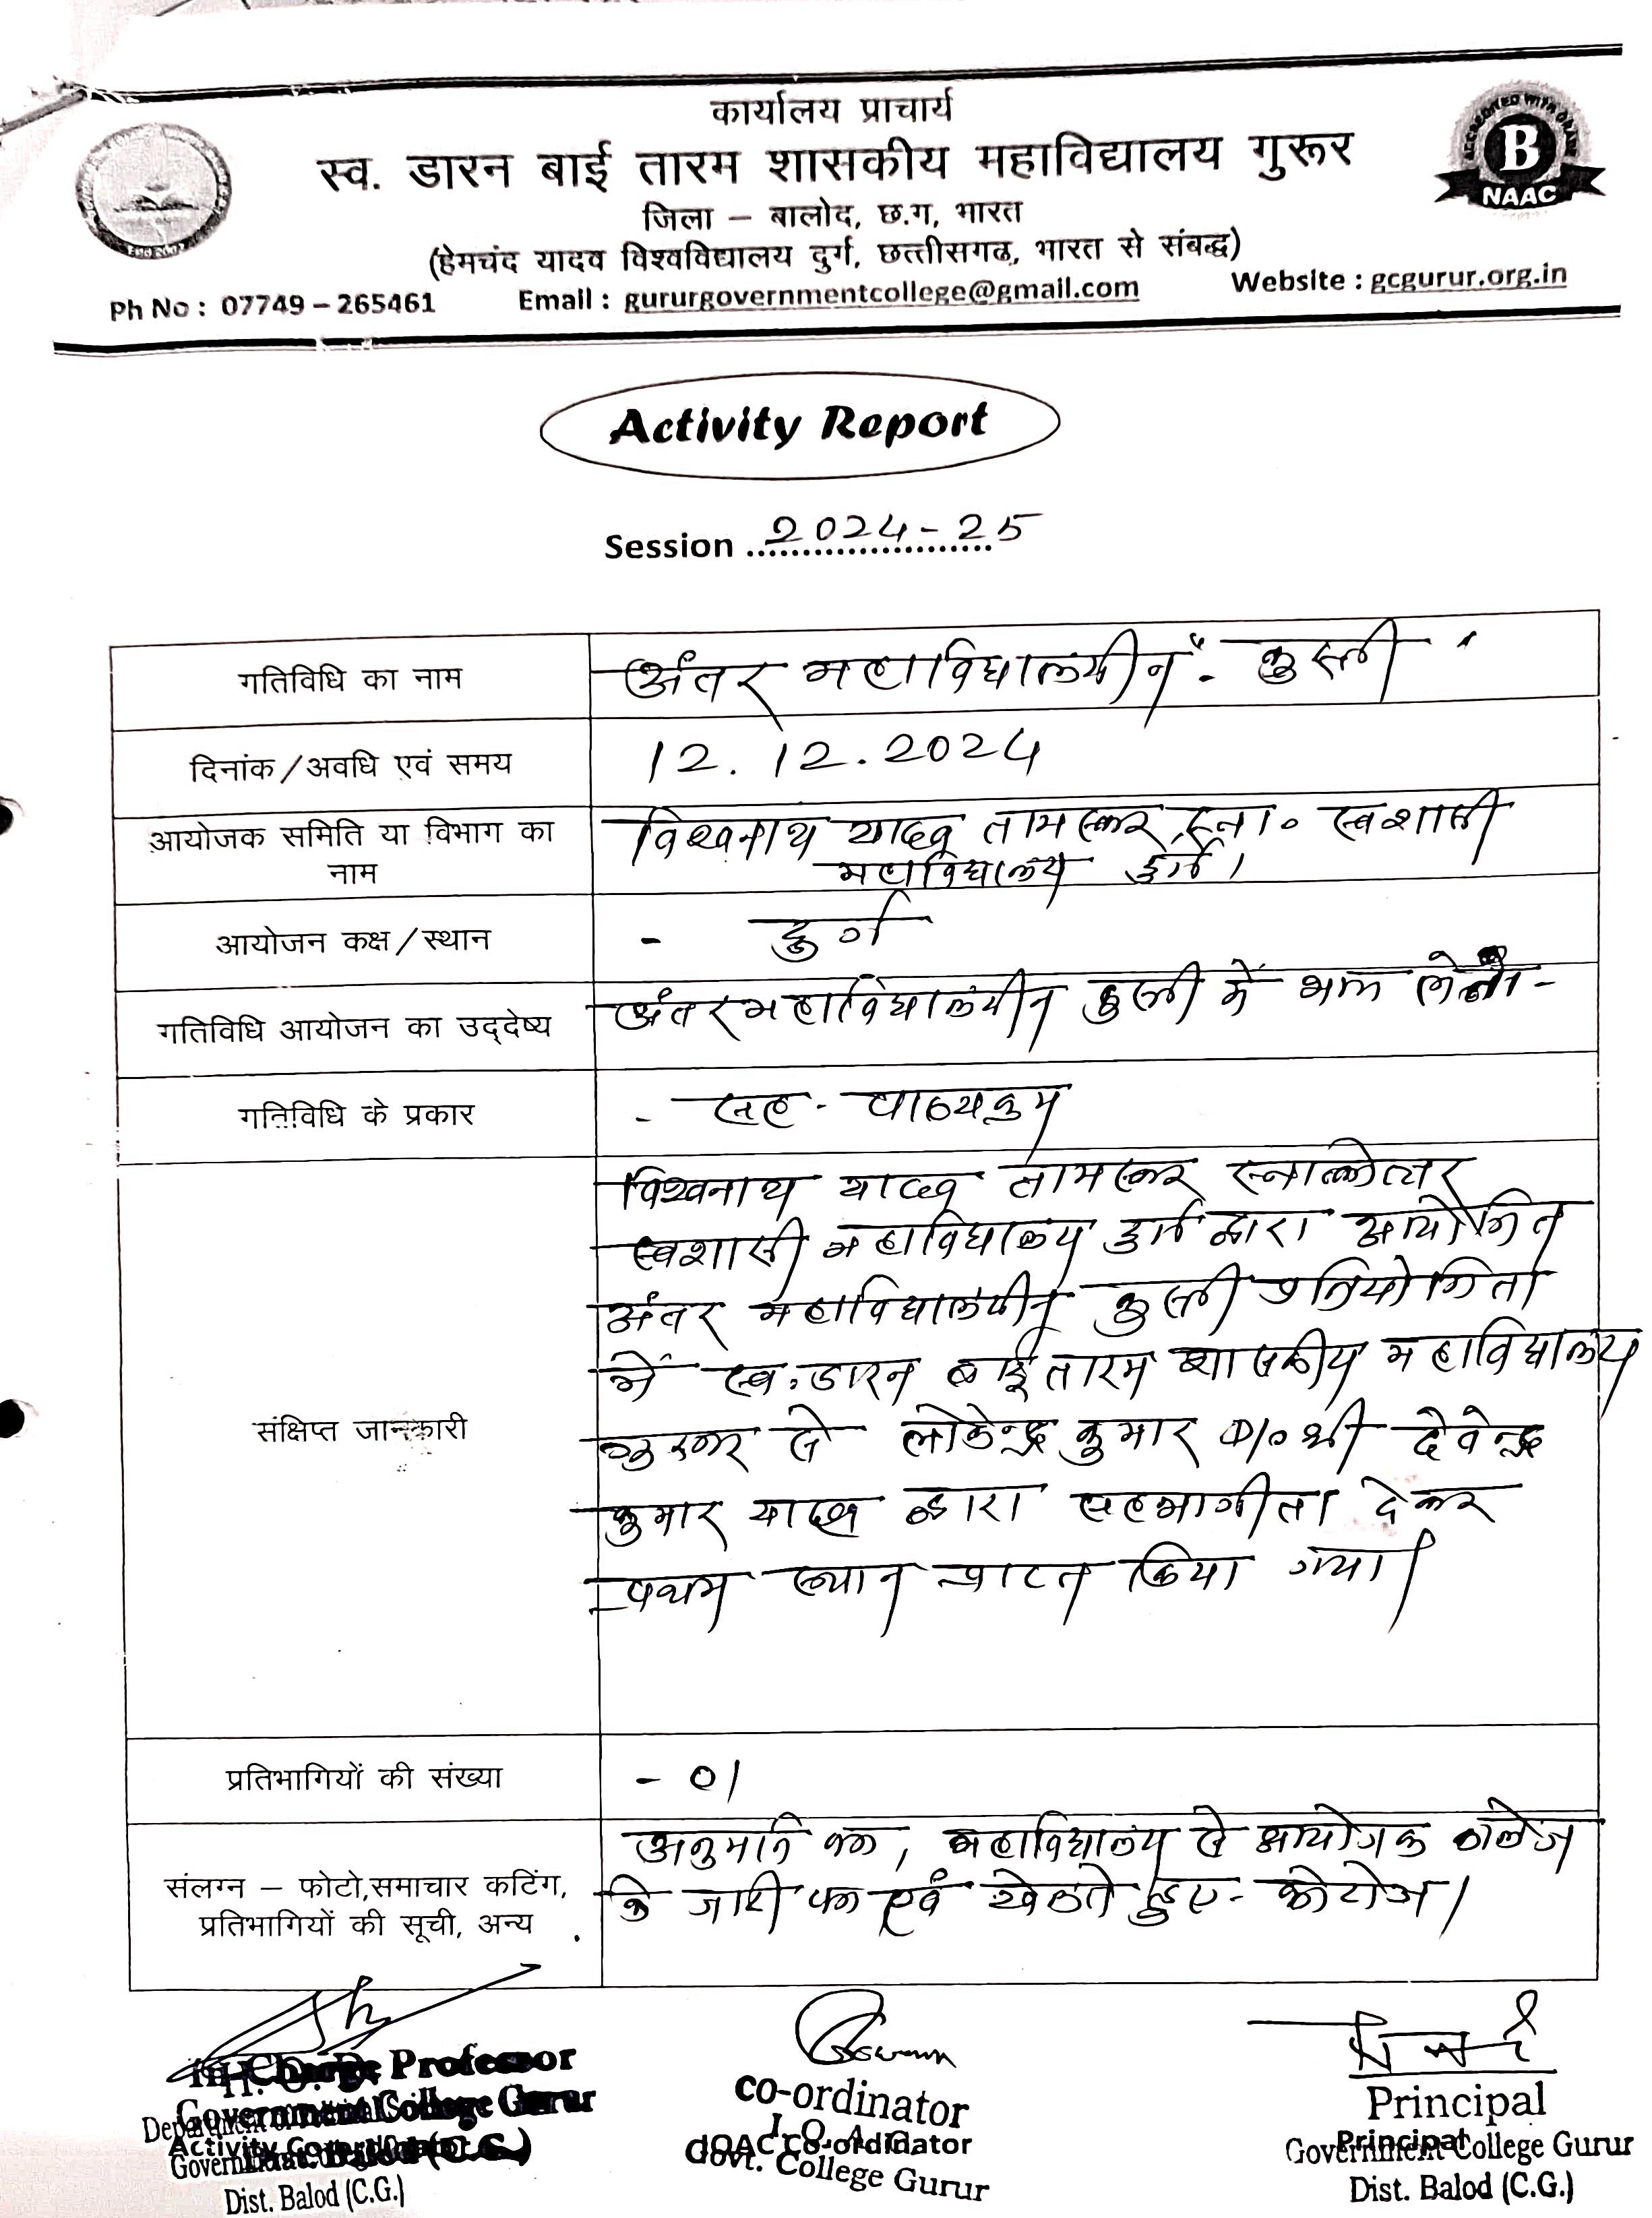 कार्यालय प्राचार्य
स्व. डारन बाई तारम शासकीय महाविद्यालय गुरूर
जिला – बालोद, छ.ग, भारत
(हेमचंद यादव विश्वविद्यालय दुर्ग, छत्तीसगढ, भारत से संबद्ध)
Ph No : 07749 – 265461 Email : gururgovernmentcollege@gmail.com Website : gcgurur.org.in
ACCREDITED WITH GRADE
B
NAAC
Activity Report
Session 2024-25
गतिविधि का नाम
अंतर महाविद्यालयीन - कुस्ती
दिनांक/अवधि एवं समय
12.12.2024
आयोजक समिति या विभाग का
नाम
विश्वनाथ यादव तामस्कर स्ना० स्वशासी
महाविद्यालय दुर्ग।
आयोजन कक्ष/स्थान
- दुर्ग
गतिविधि आयोजन का उद्देष्य
अंतरमहाविद्यालयीन कुस्ती में भाग लेना-
गतिविधि के प्रकार
- सह - पाठ्यक्रम
संक्षिप्त जानकारी
विश्वनाथ यादव तामस्कर स्नातकोत्तर
स्वशासी महाविद्यालय दुर्ग द्वारा आयोजित
अंतर महाविद्यालयीन कुस्ती प्रतियोगिता
में स्व. डारन बाई तारम शासकीय महाविद्यालय
गुरूर से लोकेन्द्र कुमार श्री देवेन्द्र
कुमार यादव द्वारा सहभागीता देकर
प्रथम स्थान प्राप्त किया गया।
प्रतिभागियों की संख्या
- 01
संलग्न – फोटो,समाचार कटिंग,
प्रतिभागियों की सूची, अन्य
अनुमति पत्र, महाविद्यालय से आयोजक कॉलेज
के जारी पत्र एवं खेलते हुए - फोटोज।
In Charge Professor
H. O. D.
Government College Gurur
Dist. Balod (C.G.)
co-ordinator
I. Q. A. C.
IQAC Co-ordinator
Govt. College Gurur
Principal
Principal
Government College Gurur
Dist. Balod (C.G.)